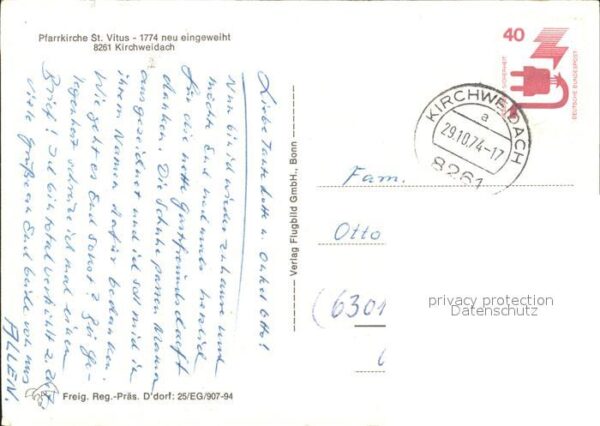 Pfarrkirche St. Vitus - 1774 neu eingeweiht
8261 Kirchweidach
Liebe Tante Lotte u. Onkel Otto!
Nun bin ich wieder zuhause und
möchte Euch nochmals herzlich
für die nette Gastfreundschaft
danken. Die Schuhe passen Mama
ausgezeichnet und ich soll mich in
ihrem Namen dafür bedanken.
Wie geht es Euch sonst? Bei Ge-
legenheit schreibe ich mal einen
Brief! Ich bin total verkühlt z. Zt.
Viele Grüße an Euch beide von uns
ALLEN.
Freig. Reg.-Präs. D'dorf: 25/EG/907-94
Verlag Flugbild GmbH., Bonn
40
DEUTSCHE BUNDESPOST
KIRCHWEIDACH
a
29.10.74-17
8261
Fam.
Otto
(6301
privacy protection
Datenschutz